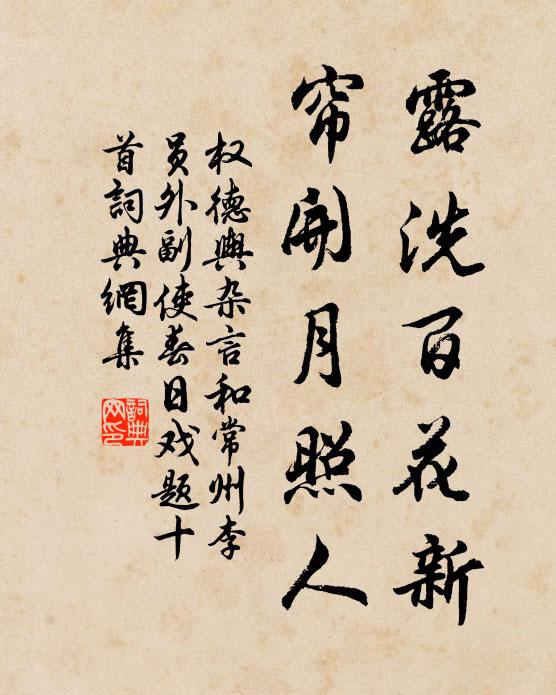 露洗百花新
帘開月照人
权德輿杂言和常州李
員外副使春日戏题十
首詞典網集
詞典
网印